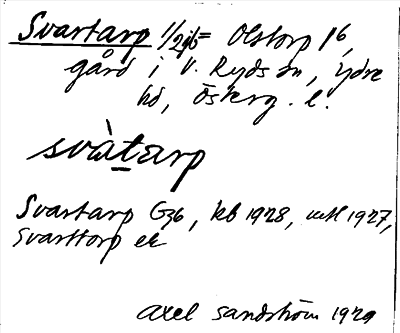 Svartarp 1/2jb= Olstorp 1b,
gård i V. Ryds sn, Ydre
hd, Österg. l.
svàtarp
Svartarp G36, kb 1928, mtl 1927,
Svarttorp ek
Axel Sandström 1929